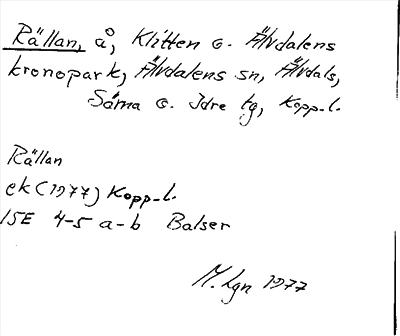 Rällan, å, Klitten o. Älvdalens
kronopark, Älvdalens sn, Älvdals,
Särna o. Idre tg, Kopp.l.
Rällan
ek (1977) Kopp.l.
15E 4-5 a-b Balser
M. Lgn 1977